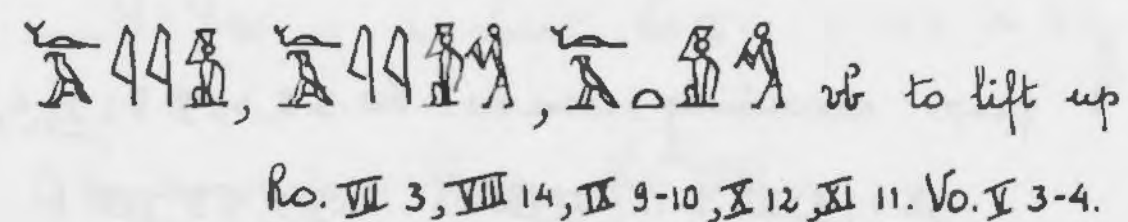 𓆑𓄿𓇋𓇋𓀋, 𓆑𓄿𓇋𓇋𓀋𓀜, 𓆑𓄿𓏏𓀋𓀜 vb to lift up
Ro. VII 3, VIII 14, IX 9-10, X 12, XI 11. Vo. V 3-4.